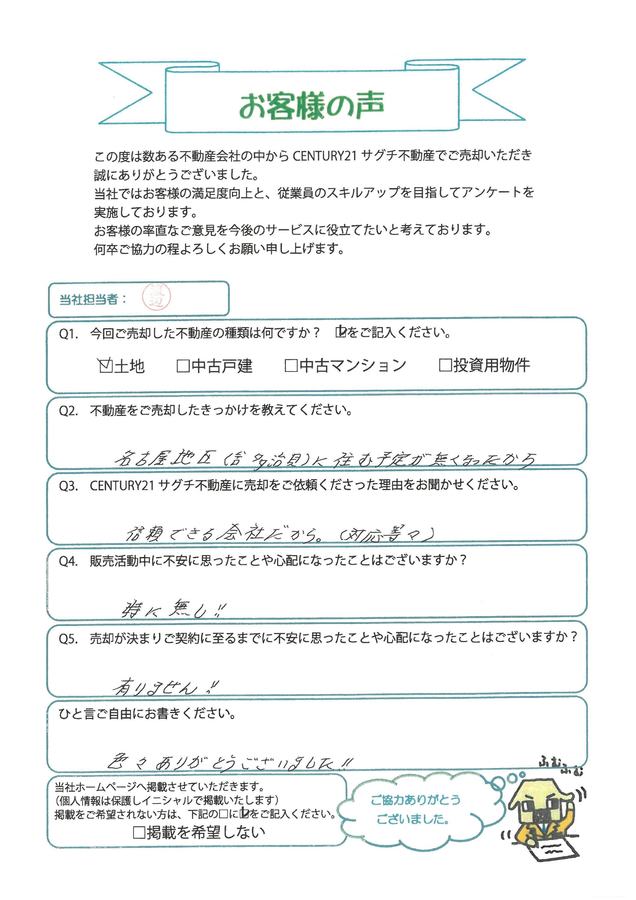 お客様の声
この度は数ある不動産会社の中からCENTURY21サグチ不動産でご売却いただき
誠にありがとうございました。
当社ではお客様の満足度向上と、従業員のスキルアップを目指してアンケートを
実施しております。
お客様の率直なご意見を今後のサービスに役立てたいと考えております。
何卒ご協力の程よろしくお願い申し上げます。
当社担当者：
Q1. 今回ご売却した不動産の種類は何ですか？ ☑をご記入ください。
☑土地 □中古戸建 □中古マンション □投資用物件
Q2. 不動産をご売却したきっかけを教えてください。
名古屋地区に住む予定が無くなったから
Q3. CENTURY21サグチ不動産に売却をご依頼くださった理由をお聞かせください。
信頼できる会社だから。(対応等々)
Q4. 販売活動中に不安に思ったことや心配になったことはございますか？
特に無し!!
Q5. 売却が決まりご契約に至るまでに不安に思ったことや心配になったことはございますか？
有りません!!
ひと言ご自由にお書きください。
色々ありがとうございました!!
ふむふむ
当社ホームページへ掲載させていただきます。
（個人情報は保護しイニシャルで掲載いたします）
掲載をご希望されない方は、下記の□に☑をご記入ください。
□掲載を希望しない
ご協力ありがとう
ございました。